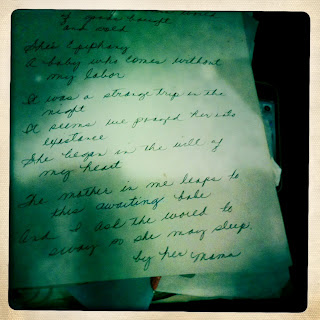 of goods bought
and sold
She's Epiphany
A baby who comes without
my labor
It was a strange trip in the
night
It seems we prayed her into
existance
She began in the will of
my heart
The mother in me leaps to
this awaiting babe
And I ask the world to
sway so she may sleep.
by her Mama